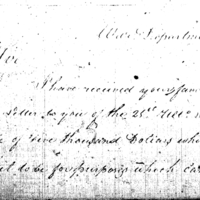 War Departm
Sir
I have received your fam
letter to you of the 25th
of five thousand Dollars whic
to be for purposes which ca